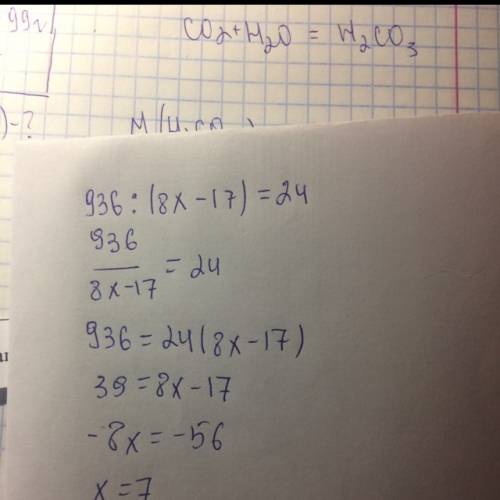 99г
CO₂+H₂O = H₂CO₃
)-?
936 : (8x - 17) = 24
936
8x-17 = 24
936 = 24(8x-17)
39 = 8x-17
-8x = -56
x = 7